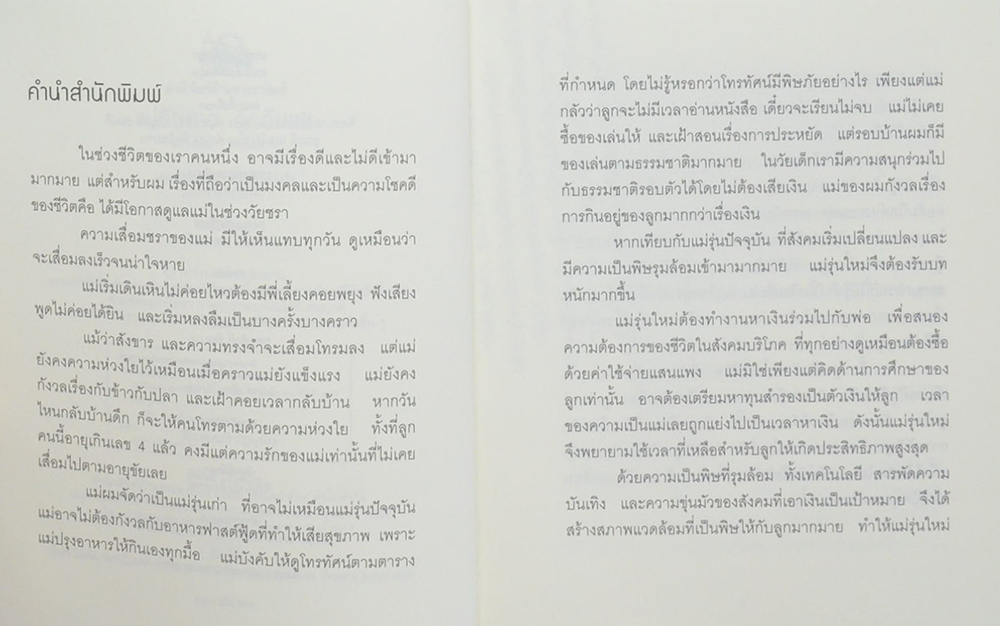 คำนำสำนักพิมพ์
ในช่วงชีวิตของเราคนหนึ่ง อาจมีเรื่องดีและไม่ดีเข้ามา
มากมาย แต่สำหรับผม เรื่องที่ถือว่าเป็นมงคลและเป็นความโชคดี
ของชีวิตคือ ได้มีโอกาสดูแลแม่ในช่วงวัยชรา
ความเสื่อมชราของแม่ มีให้เห็นแทบทุกวัน ดูเหมือนว่า
จะเสื่อมลงเร็วจนน่าใจหาย
แม่เริ่มเดินเหินไม่ค่อยไหวต้องมีพี่เลี้ยงคอยพยุง ฟังเสียง
พูดไม่ค่อยได้ยิน และเริ่มหลงลืมเป็นบางครั้งบางคราว
แม้ว่าสังขาร และความทรงจำจะเสื่อมโทรมลง แต่แม่
ยังคงความห่วงใยไว้เหมือนเมื่อคราวแม่ยังแข็งแรง แม่ยังคง
กังวลเรื่องกับข้าวกับปลา และเฝ้าคอยเวลากลับบ้าน หากวัน
ไหนกลับบ้านดึก ก็จะให้คนโทรตามด้วยความห่วงใย ทั้งที่ลูก
คนนี้อายุเกินเลข 4 แล้ว คงมีแต่ความรักของแม่เท่านั้นที่ไม่เคย
เสื่อมไปตามอายุขัยเลย
แม่ผมจัดว่าเป็นแม่รุ่นเก่า ที่อาจไม่เหมือนแม่รุ่นปัจจุบัน
แม่อาจไม่ต้องกังวลกับอาหารฟาสต์ฟู้ดที่ทำให้เสียสุขภาพ เพราะ
แม่ปรุงอาหารให้กินเองทุกมื้อ แม่บังคับให้ดูโทรทัศน์ตามตาราง
ที่กำหนด โดยไม่รู้หรอกว่าโทรทัศน์มีพิษภัยอย่างไร เพียงแต่แม่
กลัวว่าลูกจะไม่มีเวลาอ่านหนังสือ เดี๋ยวจะเรียนไม่จบ แม่ไม่เคย
ซื้อของเล่นให้ และเฝ้าสอนเรื่องการประหยัด แต่รอบบ้านผมก็มี
ของเล่นตามธรรมชาติมากมาย ในวัยเด็กเรามีความสนุกร่วมไป
กับธรรมชาติรอบตัวได้โดยไม่ต้องเสียเงิน แม่ของผมกังวลเรื่อง
การกินอยู่ของลูกมากกว่าเรื่องเงิน
หากเทียบกับแม่รุ่นปัจจุบัน ที่สังคมเริ่มเปลี่ยนแปลง และ
มีความเป็นพิษรุมล้อมเข้ามามากมาย แม่รุ่นใหม่จึงต้องรับบท
หนักมากขึ้น
แม่รุ่นใหม่ต้องทำงานหาเงินร่วมไปกับพ่อ เพื่อสนอง
ความต้องการของชีวิตในสังคมบริโภค ที่ทุกอย่างดูเหมือนต้องซื้อ
ด้วยค่าใช้จ่ายแสนแพง แม่มิใช่เพียงแต่คิดด้านการศึกษาของ
ลูกเท่านั้น อาจต้องเตรียมหาทุนสำรองเป็นตัวเงินให้ลูก เวลา
ของความเป็นแม่เลยถูกแย่งไปเป็นเวลาหาเงิน ดังนั้นแม่รุ่นใหม่
จึงพยายามใช้เวลาที่เหลือสำหรับลูกให้เกิดประสิทธิภาพสูงสุด
ด้วยความเป็นพิษที่รุมล้อม ทั้งเทคโนโลยี สารพัดความ
บันเทิง และความขุ่นมัวของสังคมที่เอาเงินเป็นเป้าหมาย จึงได้
สร้างสภาพแวดล้อมที่เป็นพิษให้กับลูกมากมาย ทำให้แม่รุ่นใหม่